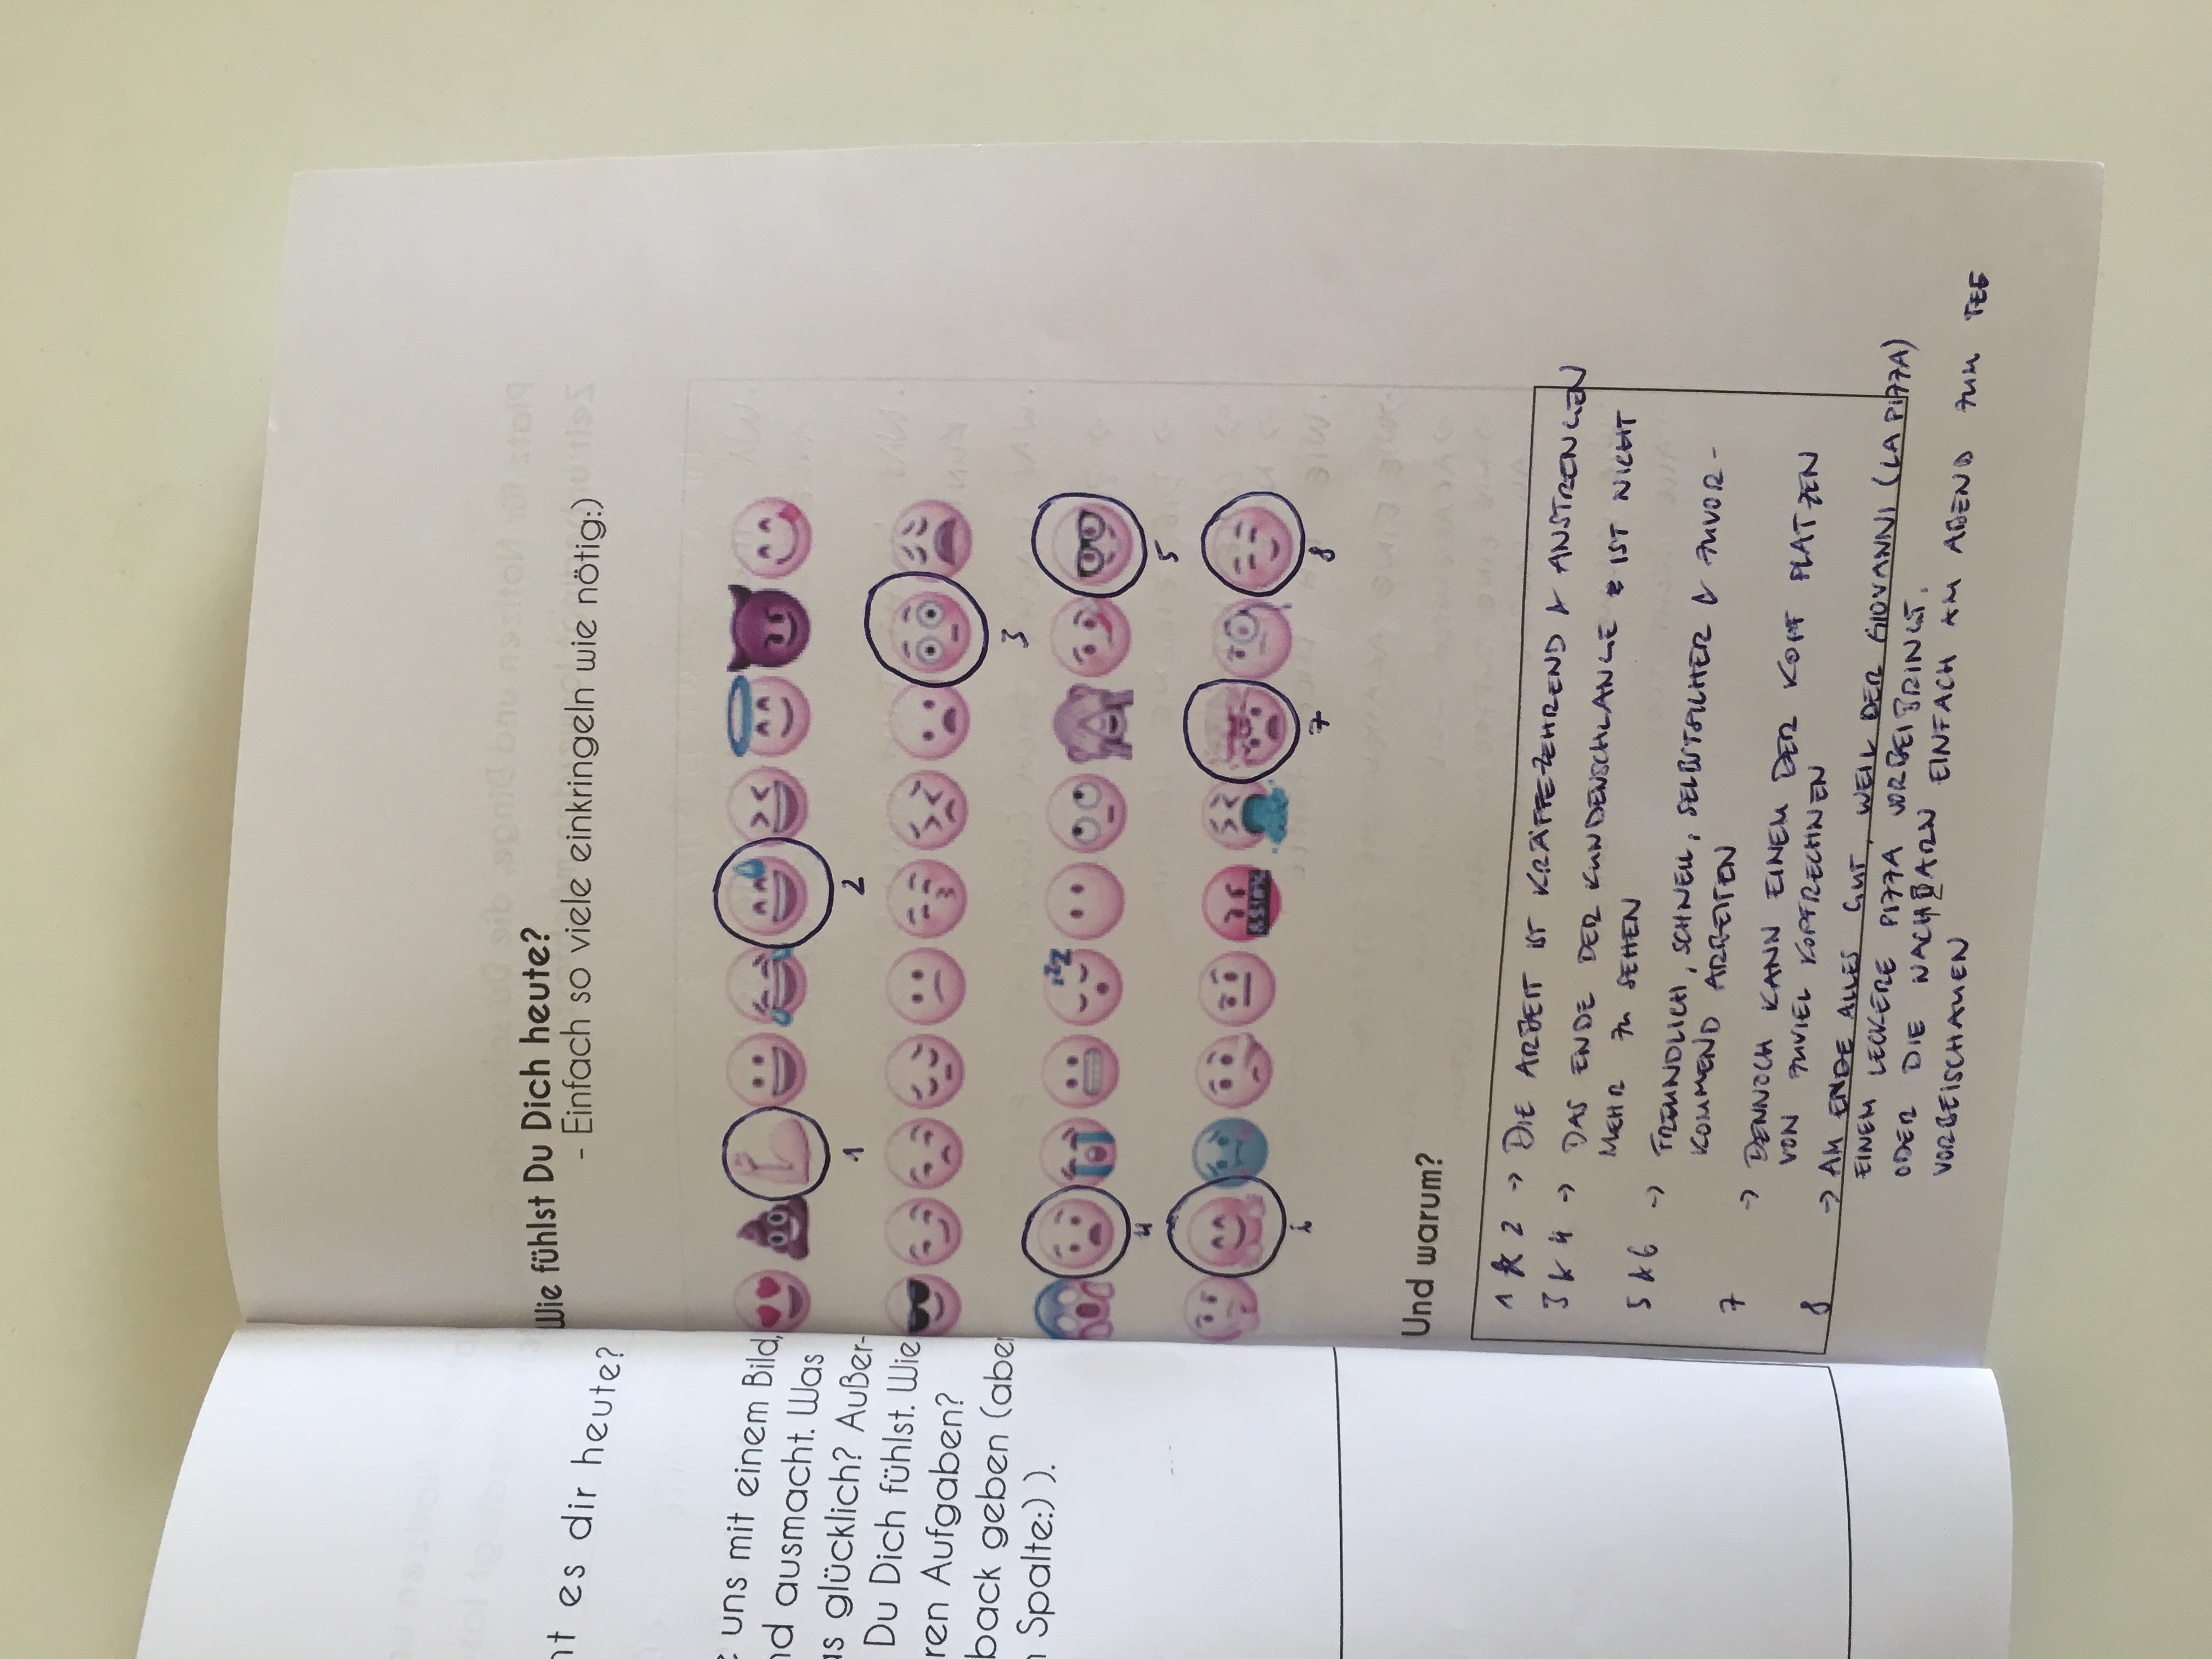 nt es dir heute?
uns mit einem Bild,
nd ausmacht. Was
as glücklich? Außer-
Du Dich fühlst. Wie
ren Aufgaben?
back geben (aber
n Spalte:) ).
Wie fühlst Du Dich heute?
- Einfach so viele einkringeln wie nötig:)
1
2
3
4
5
6
7
8
Und warum?
1 & 2 → DIE ARBEIT IST KRÄFTEZEHREND & ANSTRENGEN
3 & 4 → DAS ENDE DER KUNDENSCHLANGE IST NICHT
MEHR ZU SEHEN
5 & 6 → FREUNDLICH, SCHNELL, SELBSTSICHER & ZUVOR-
KOMMEND ARBEITEN
7 → DENNOCH KANN EINEM DER KOPF PLATZEN
VON ZUVIEL KOPFRECHNEN
8 → AM ENDE ALLES GUT, WEIL DER GIOVANNI (LA PIZZA)
EINEM LECKERE PIZZA VORBEIBRINGT.
ODER DIE NACHBARN EINFACH AM ABEND ZUM TEE
VORBEISCHAUEN